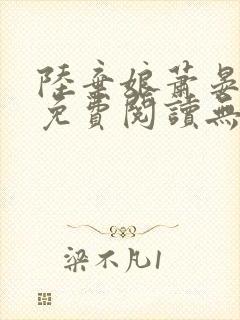 陸棄娘蕭晏
免費閱讀無
梁不凡1